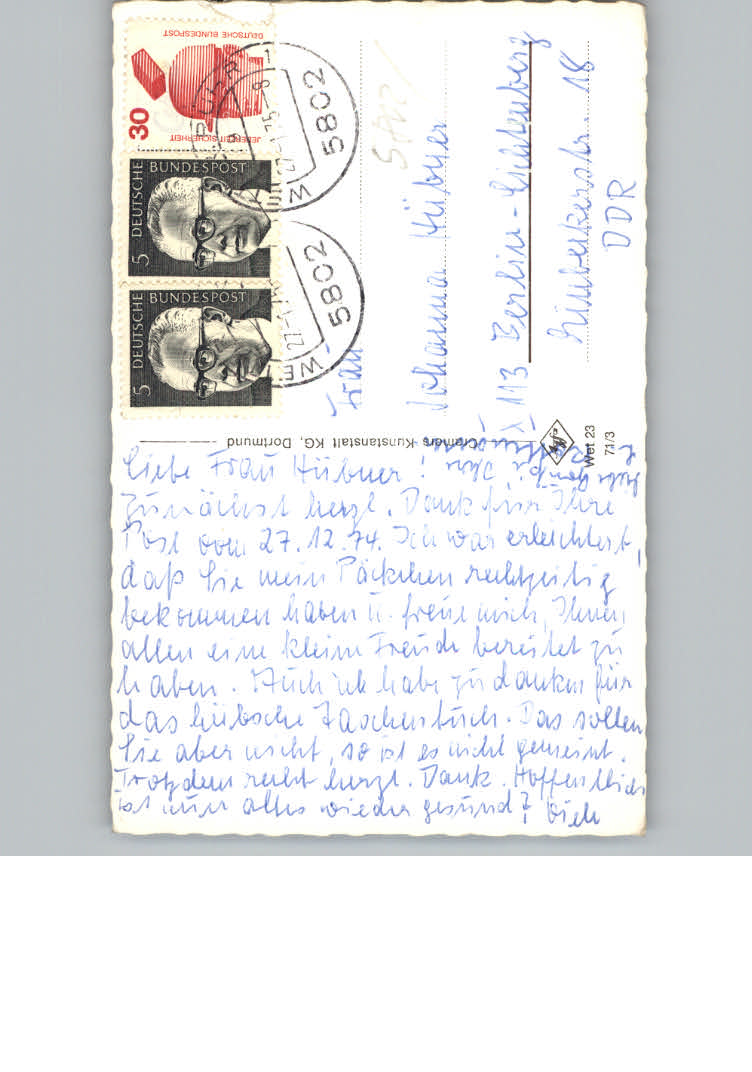 Liebe Frau Hübner!
Zunächst herzl. Dank für Ihre
Post vom 27.12.74. Ich war erleichtert,
daß Sie mein Päckchen rechtzeitig
bekommen haben u. freue mich, Ihnen
allen eine kleine Freude bereitet zu
haben. Auch ich habe zu danken für
das hübsche Taschentuch. Das sollen
Sie aber nicht, so ist es nicht gemeint.
Trotzdem recht herzl. Dank. Hoffentlich
ist nun alles wieder gesund? Viele
Ihre
Cramers Kunstanstalt KG, Dortmund
Wet 23
71/3
30
JEDERZEIT SICHERHEIT
DEUTSCHE BUNDESPOST
5 DEUTSCHE BUNDESPOST
5 DEUTSCHE BUNDESPOST
5802
5802
Frau
Johanna Hübner
X 113 Berlin-Lichtenberg
18
DDR